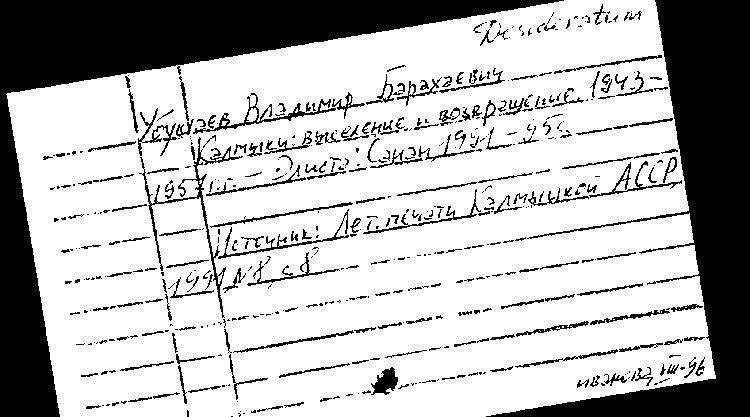 Desideratum
Убушаев Владимир Барахаевич
Калмыки: выселение и возвращение. 1943-
1957 гг. – Элиста: Санан 1991 – 95с
Источник: Лет. печати Калмыцкой АССР,
1991 №8, с 8
иванова VIII-96